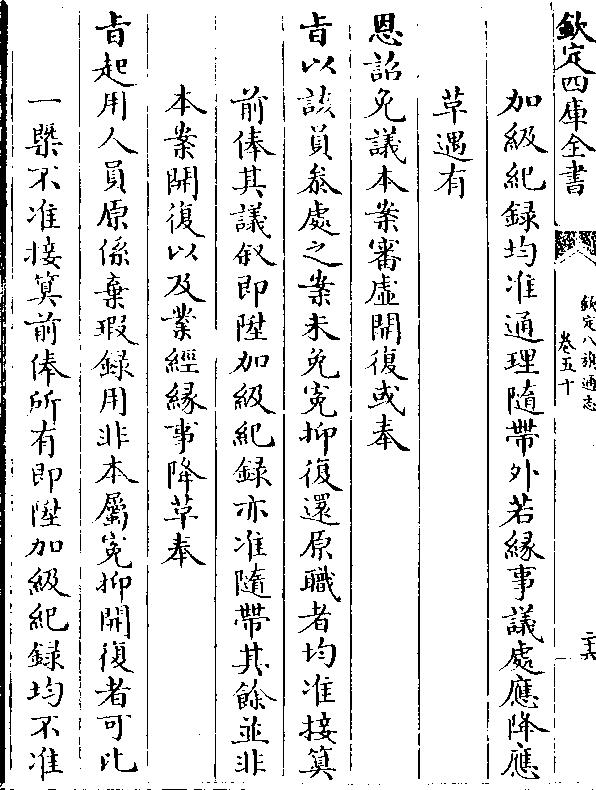 欽定四庫全書
欽定八旗通志
卷五十
二六
加級紀録均准通理隨帶外若縁事議處應降應
草遇有
恩詔免議本案審虛開復或奉
㫖以該員叅處之案未免寃抑復還原職者均准接算
前俸其議叙即陞加級紀録亦准隨帶其餘並非
本案開復以及業經縁事降草奉
㫖起用人員原係棄瑕録用非本屬寃抑開復者可比
一槩不准接算前俸所有即陞加級紀録均不准